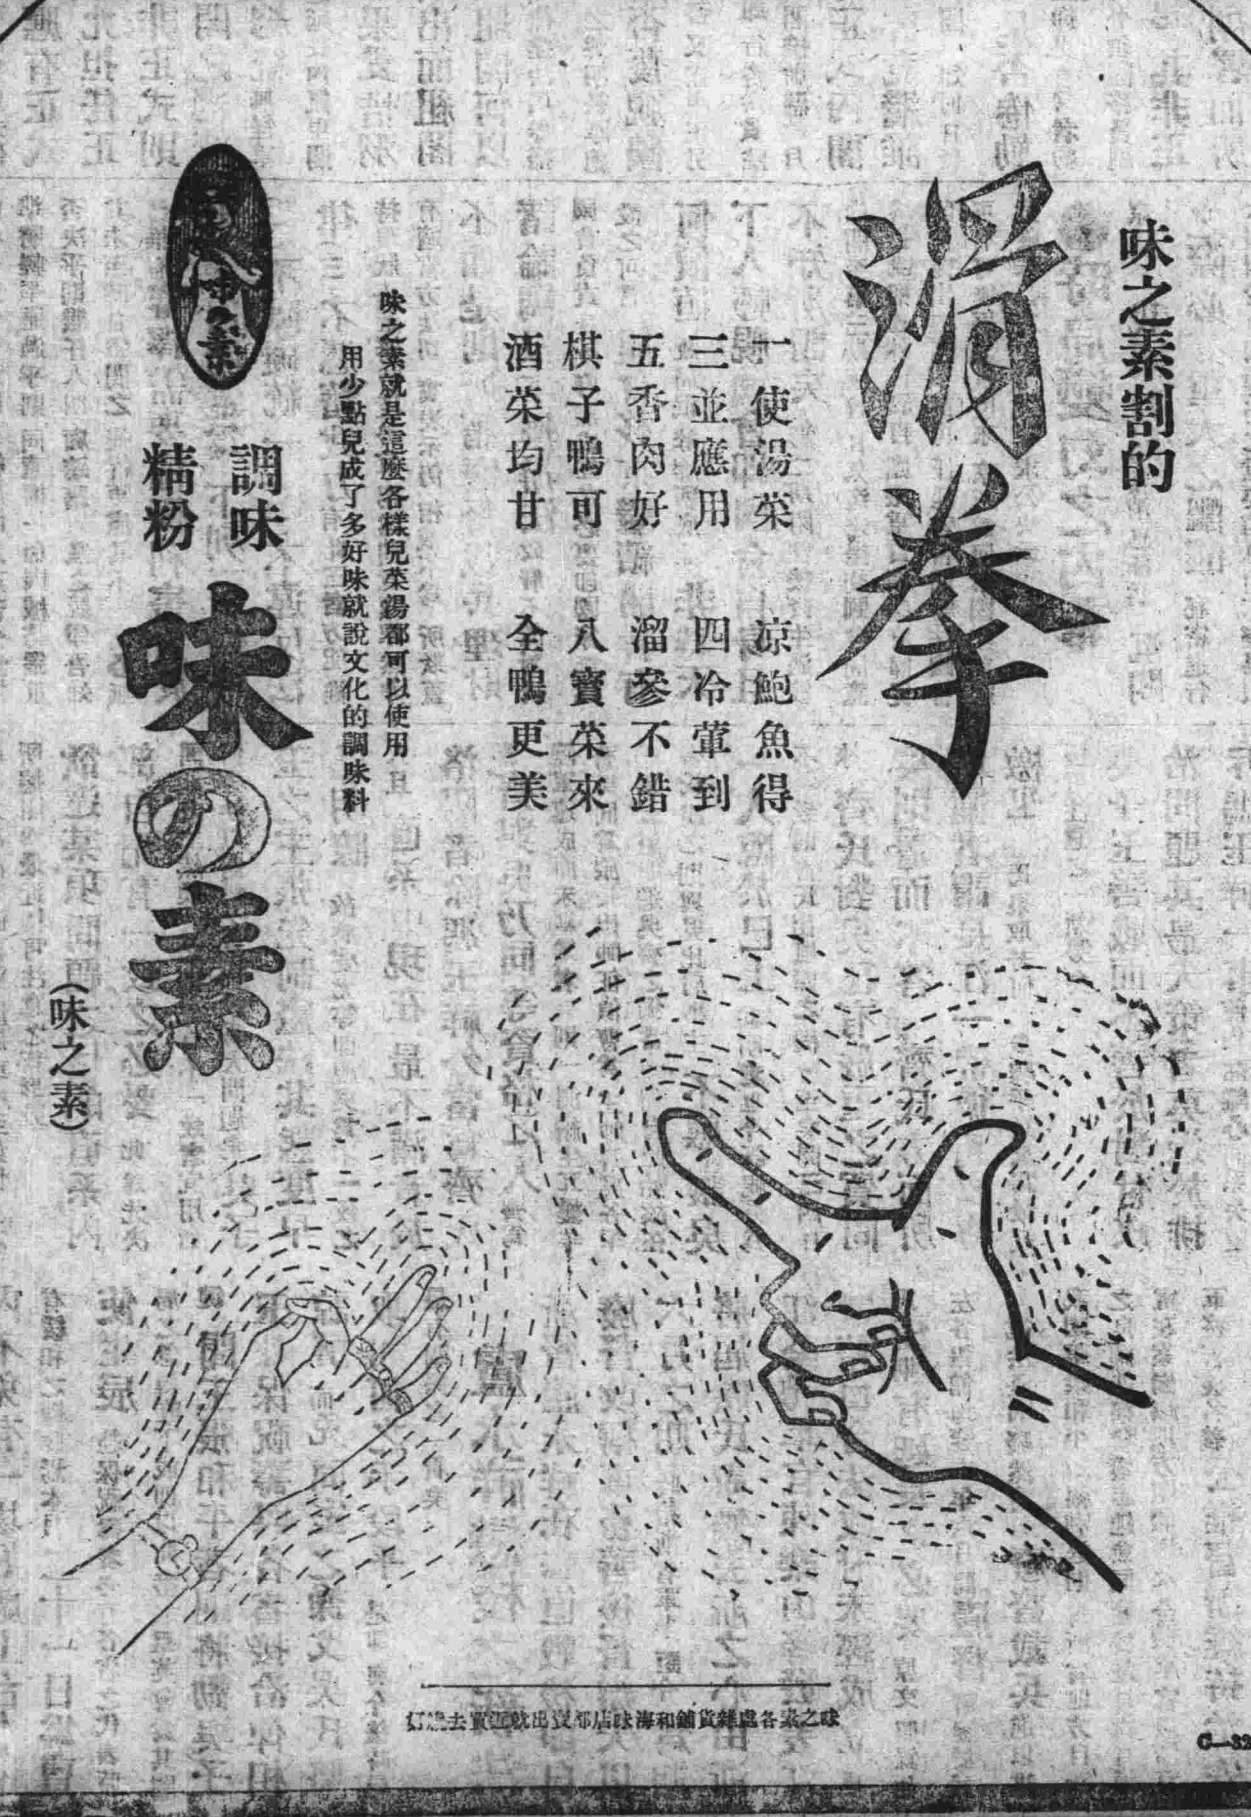 味之素割的
滑拳
一使湯菜　凉鮑魚得
三並應用　四冷葷到
五香肉好　溜參不錯
棋子鴨可　八寶菜來
酒菜均甘　全鴨更美
味之素就是這麼各樣兒菜湯都可以使用
用少點兒成了多好味就說文化的調味料
味の素
調味
精粉
味の素
(味之素)
味之素各處雜貨鋪和海味店都賣出就近買去
C—32